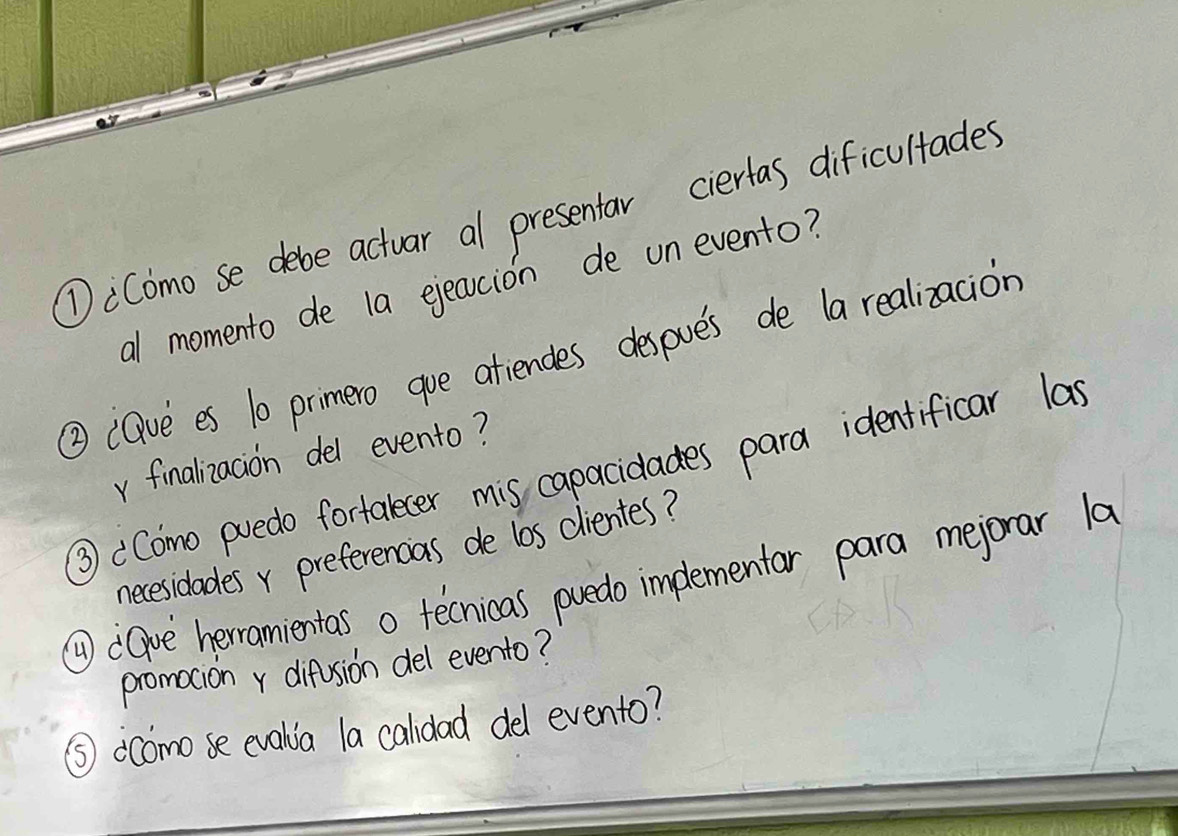 ① ¿Cómo se debe actuar al presentar ciertas dificultades
al momento de la ejecución de un evento?
② ¿Qué es lo primero que atiendes después de la realización
y finalización del evento?
③ ¿Cómo puedo fortalecer mis capacidades para identificar las
necesidades y preferencias de los clientes?
④ ¿Qué herramientas o técnicas puedo implementar para mejorar la
promoción y difusión del evento?
⑤ ¿Cómo se evalúa la calidad del evento?